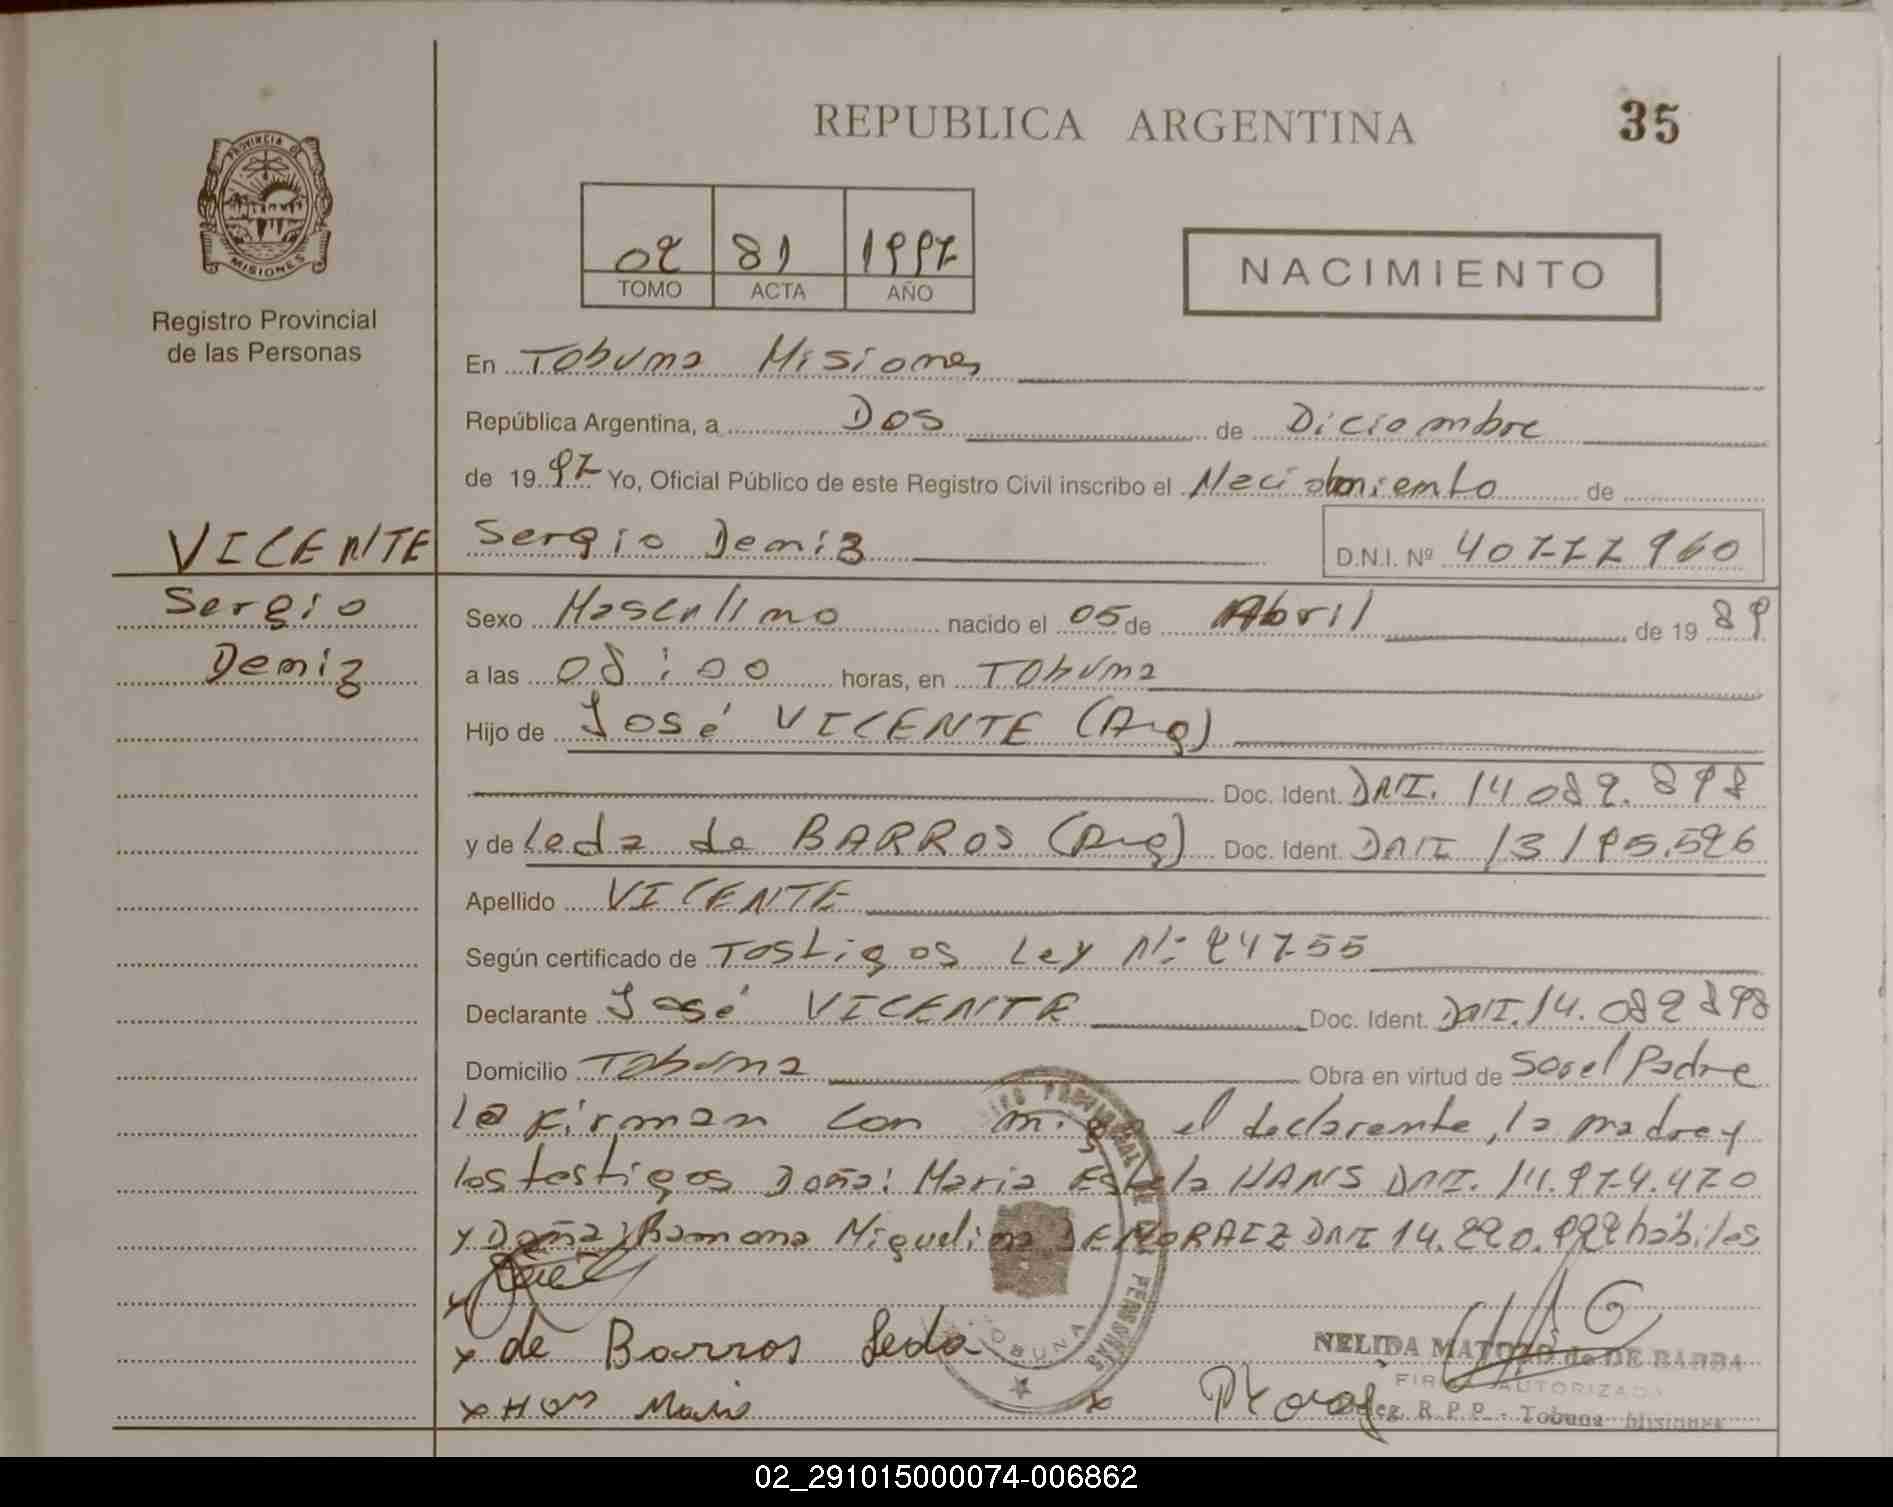 REPUBLICA ARGENTINA
35
PROVINCIA DE
MISIONES
Registro Provincial
de las Personas
02 81 1997
TOMO ACTA AÑO
NACIMIENTO
En Tobuna Misiones
República Argentina, a Dos de Diciembre
de 1997 Yo, Oficial Público de este Registro Civil inscribo el Nacimiento de
VICENTE
Sergio
Deniz
Sergio Deniz D.N.I. Nº 40777960
Sexo Masculino nacido el 05 de Abril de 1989
a las 08:00 horas, en Tobuna
Hijo de José VICENTE (Arg)
Doc. Ident. DNI. 14 089.898
y de leda de BARROS (Arg) Doc. Ident. DNI 13195.596
Apellido VICENTE
Según certificado de Testigos Ley Nº 24755
Declarante José VICENTE Doc. Ident. DNI. 14.089 898
Domicilio Tobuna Obra en virtud de Ser el Padre
la firman con migo el declarante, la madre y
los testigos Doña: Maria Estela HANS DNI. 14.974.470
y Doña: Ramona Miguelina DE MORAIZ DNI 14.220.992 hábiles
x
x de Barros Leda
x Han Maria x
NELIDA MATOZO de DE BARBA
FIRMA AUTORIZADA
Deleg. R.P.P. - Tobuna Misiones
PROVINCIAL DE PERSONAS
TOBUNA
02_291015000074-006862